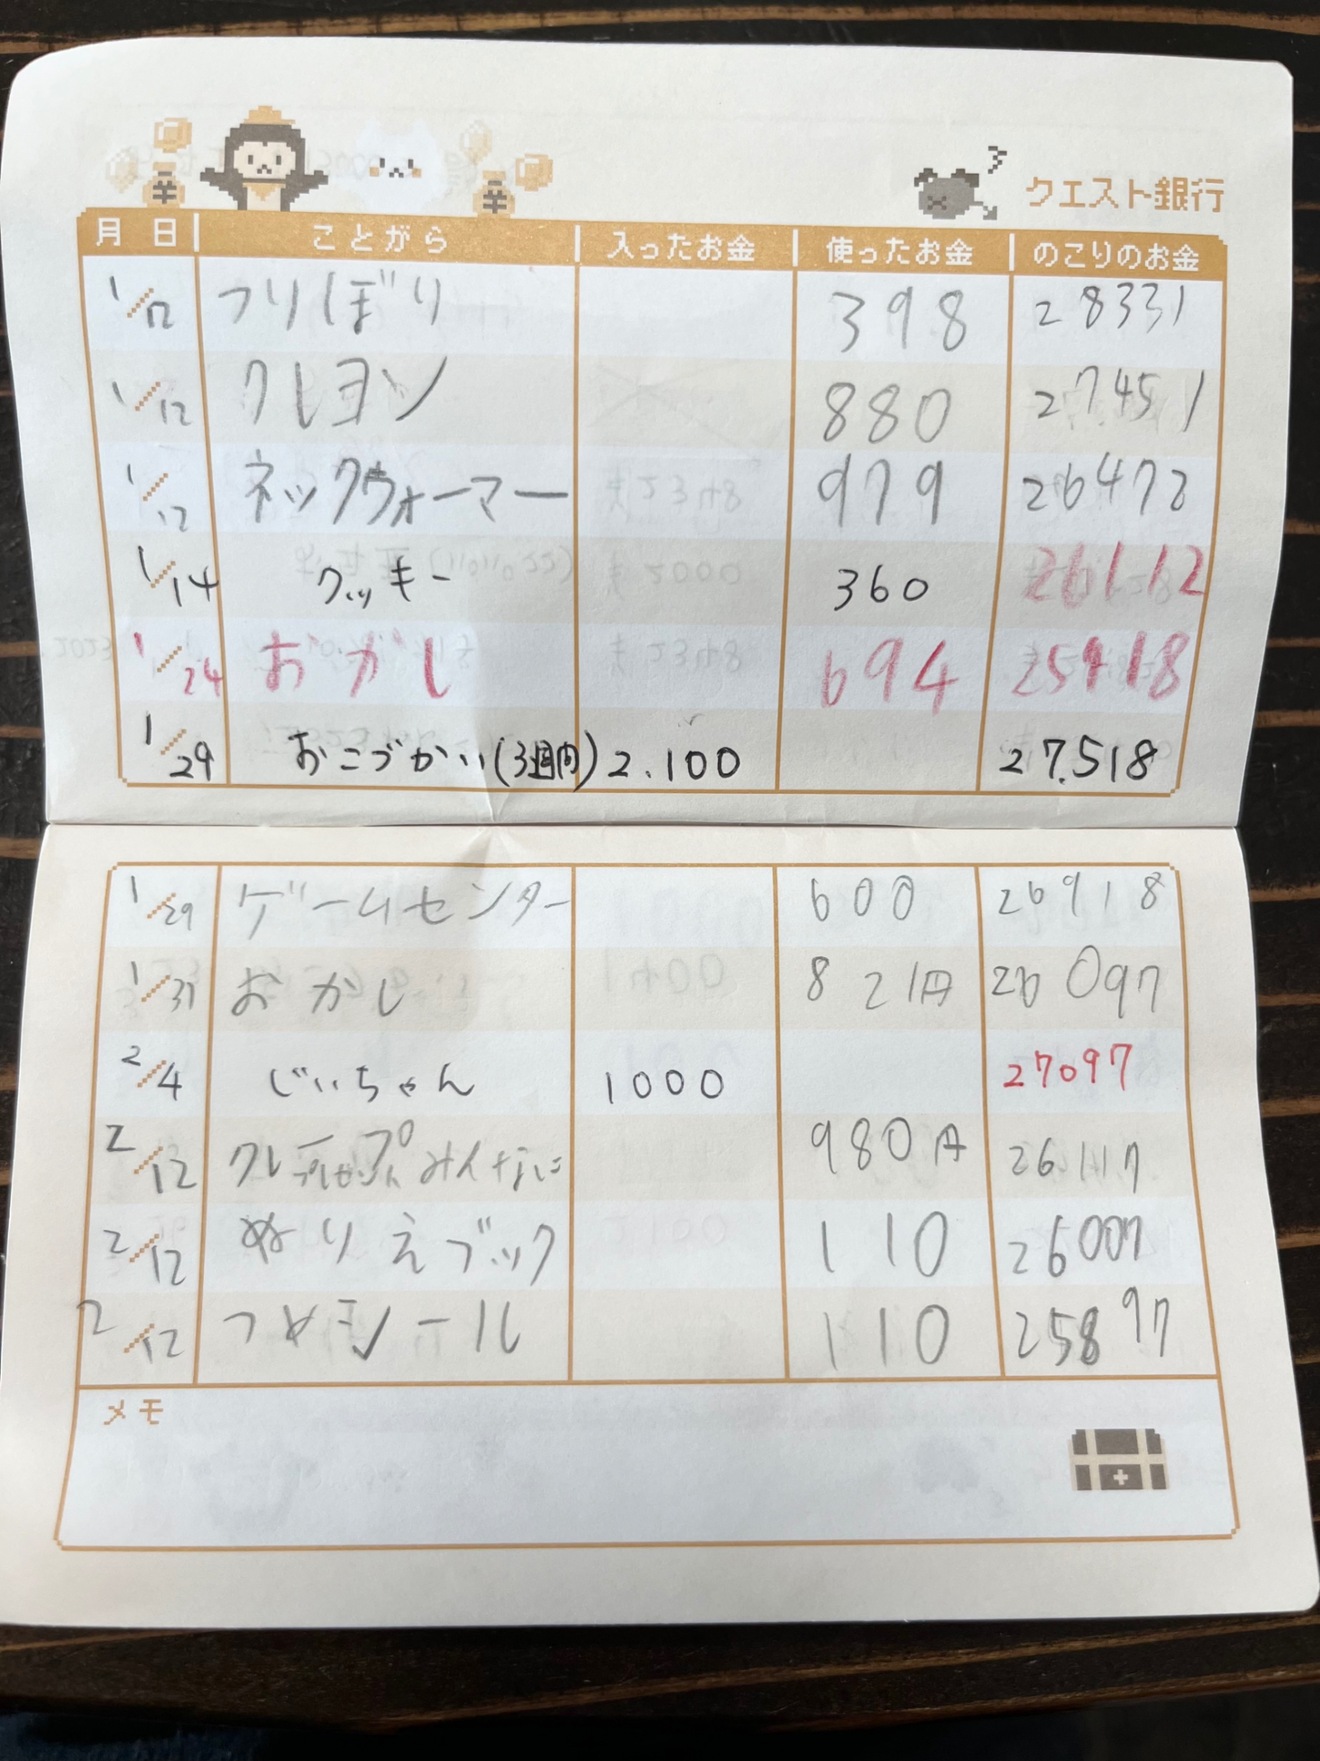 クエスト銀行
月 日 ことがら 入ったお金 使ったお金 のこりのお金
1/12 つりぼり 398 28331
1/12 クレヨン 880 27451
1/12 ネックウォーマー 979 26472
1/14 クッキー 360 26112
1/24 おかし 694 25418
1/29 おこづかい(3週間) 2.100 27.518
1/29 ゲームセンター 600 26918
1/31 おかし 821円 26097
2/4 じいちゃん 1000 27097
2/12 クレープ みんなに プレゼント 980円 26117
2/12 ぬりえブック 110 26007
2/12 つめシール 110 25897
メモ